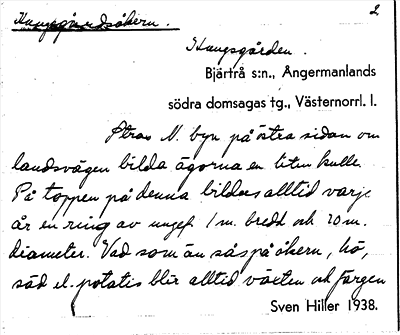 Kungsgårdsåkern.
2
Kungsgården.
Bjärtrå s:n., Ångermanlands
södra domsagas tg., Västernorrl. l.
Strax N. byn på östra sidan om
landsvägen bilda ägorna en liten kulle.
På toppen på denna bildas alltid varje
år en ring av ungef. 1 m. bredd och 20 m.
diameter. Vad som än sås på åkern, hö,
säd el. potatis blir alltid växten och färgen
Sven Hiller 1938.